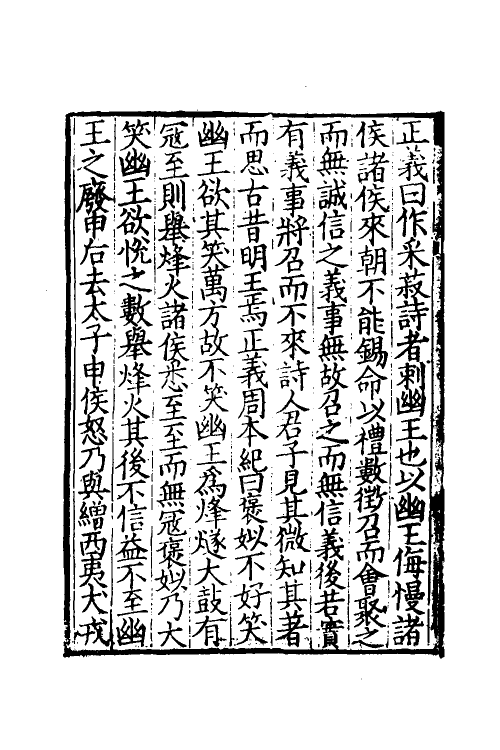 正義曰作采菽詩者刺幽王也以幽王侮慢諸
侯諸侯來朝不能錫命以禮數徵召而會聚之
而無誠信之義事無故召之而無信義後若實
有義事將召而不來詩人君子見其微知其著
而思古昔明王焉正義周本紀曰褒姒不好笑
幽王欲其笑萬方故不笑幽王為烽燧大鼓有
冦至則舉烽火諸侯悉至至而無冦褒姒乃大
笑幽王欲悅之數舉烽火其後不信益不至幽
王之廢申后去太子申侯怒乃與繒西夷犬戎